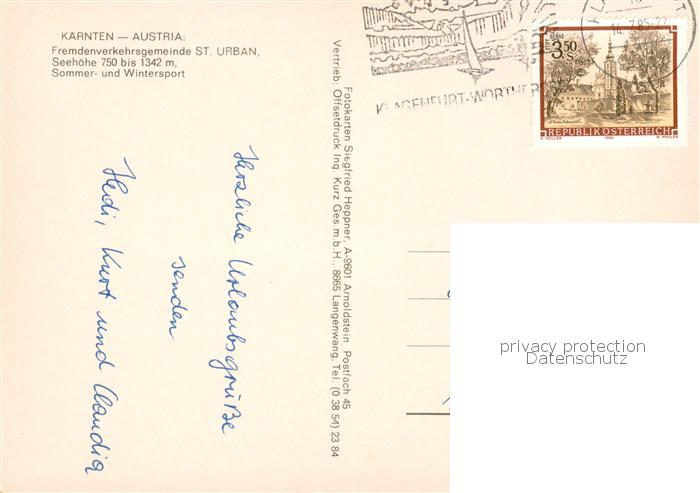 KÄRNTEN — AUSTRIA:
Fremdenverkehrsgemeinde ST. URBAN,
Seehöhe 750 bis 1342 m,
Sommer- und Wintersport
Herzliche Urlaubsgrüße
senden
Heidi, Kurt und Claudia
Fotokarten Siegfried Heppner, A-9601 Arnoldstein, Postfach 45
Vertrieb: Offsetdruck Ing. Kurz Ges.m.b.H., 8665 Langenwang, Tel. (0 38 54) 23 84
KLAGENFURT-WÖRTHER
14.7.85
3.50
S
REPUBLIK ÖSTERREICH
privacy protection
Datenschutz